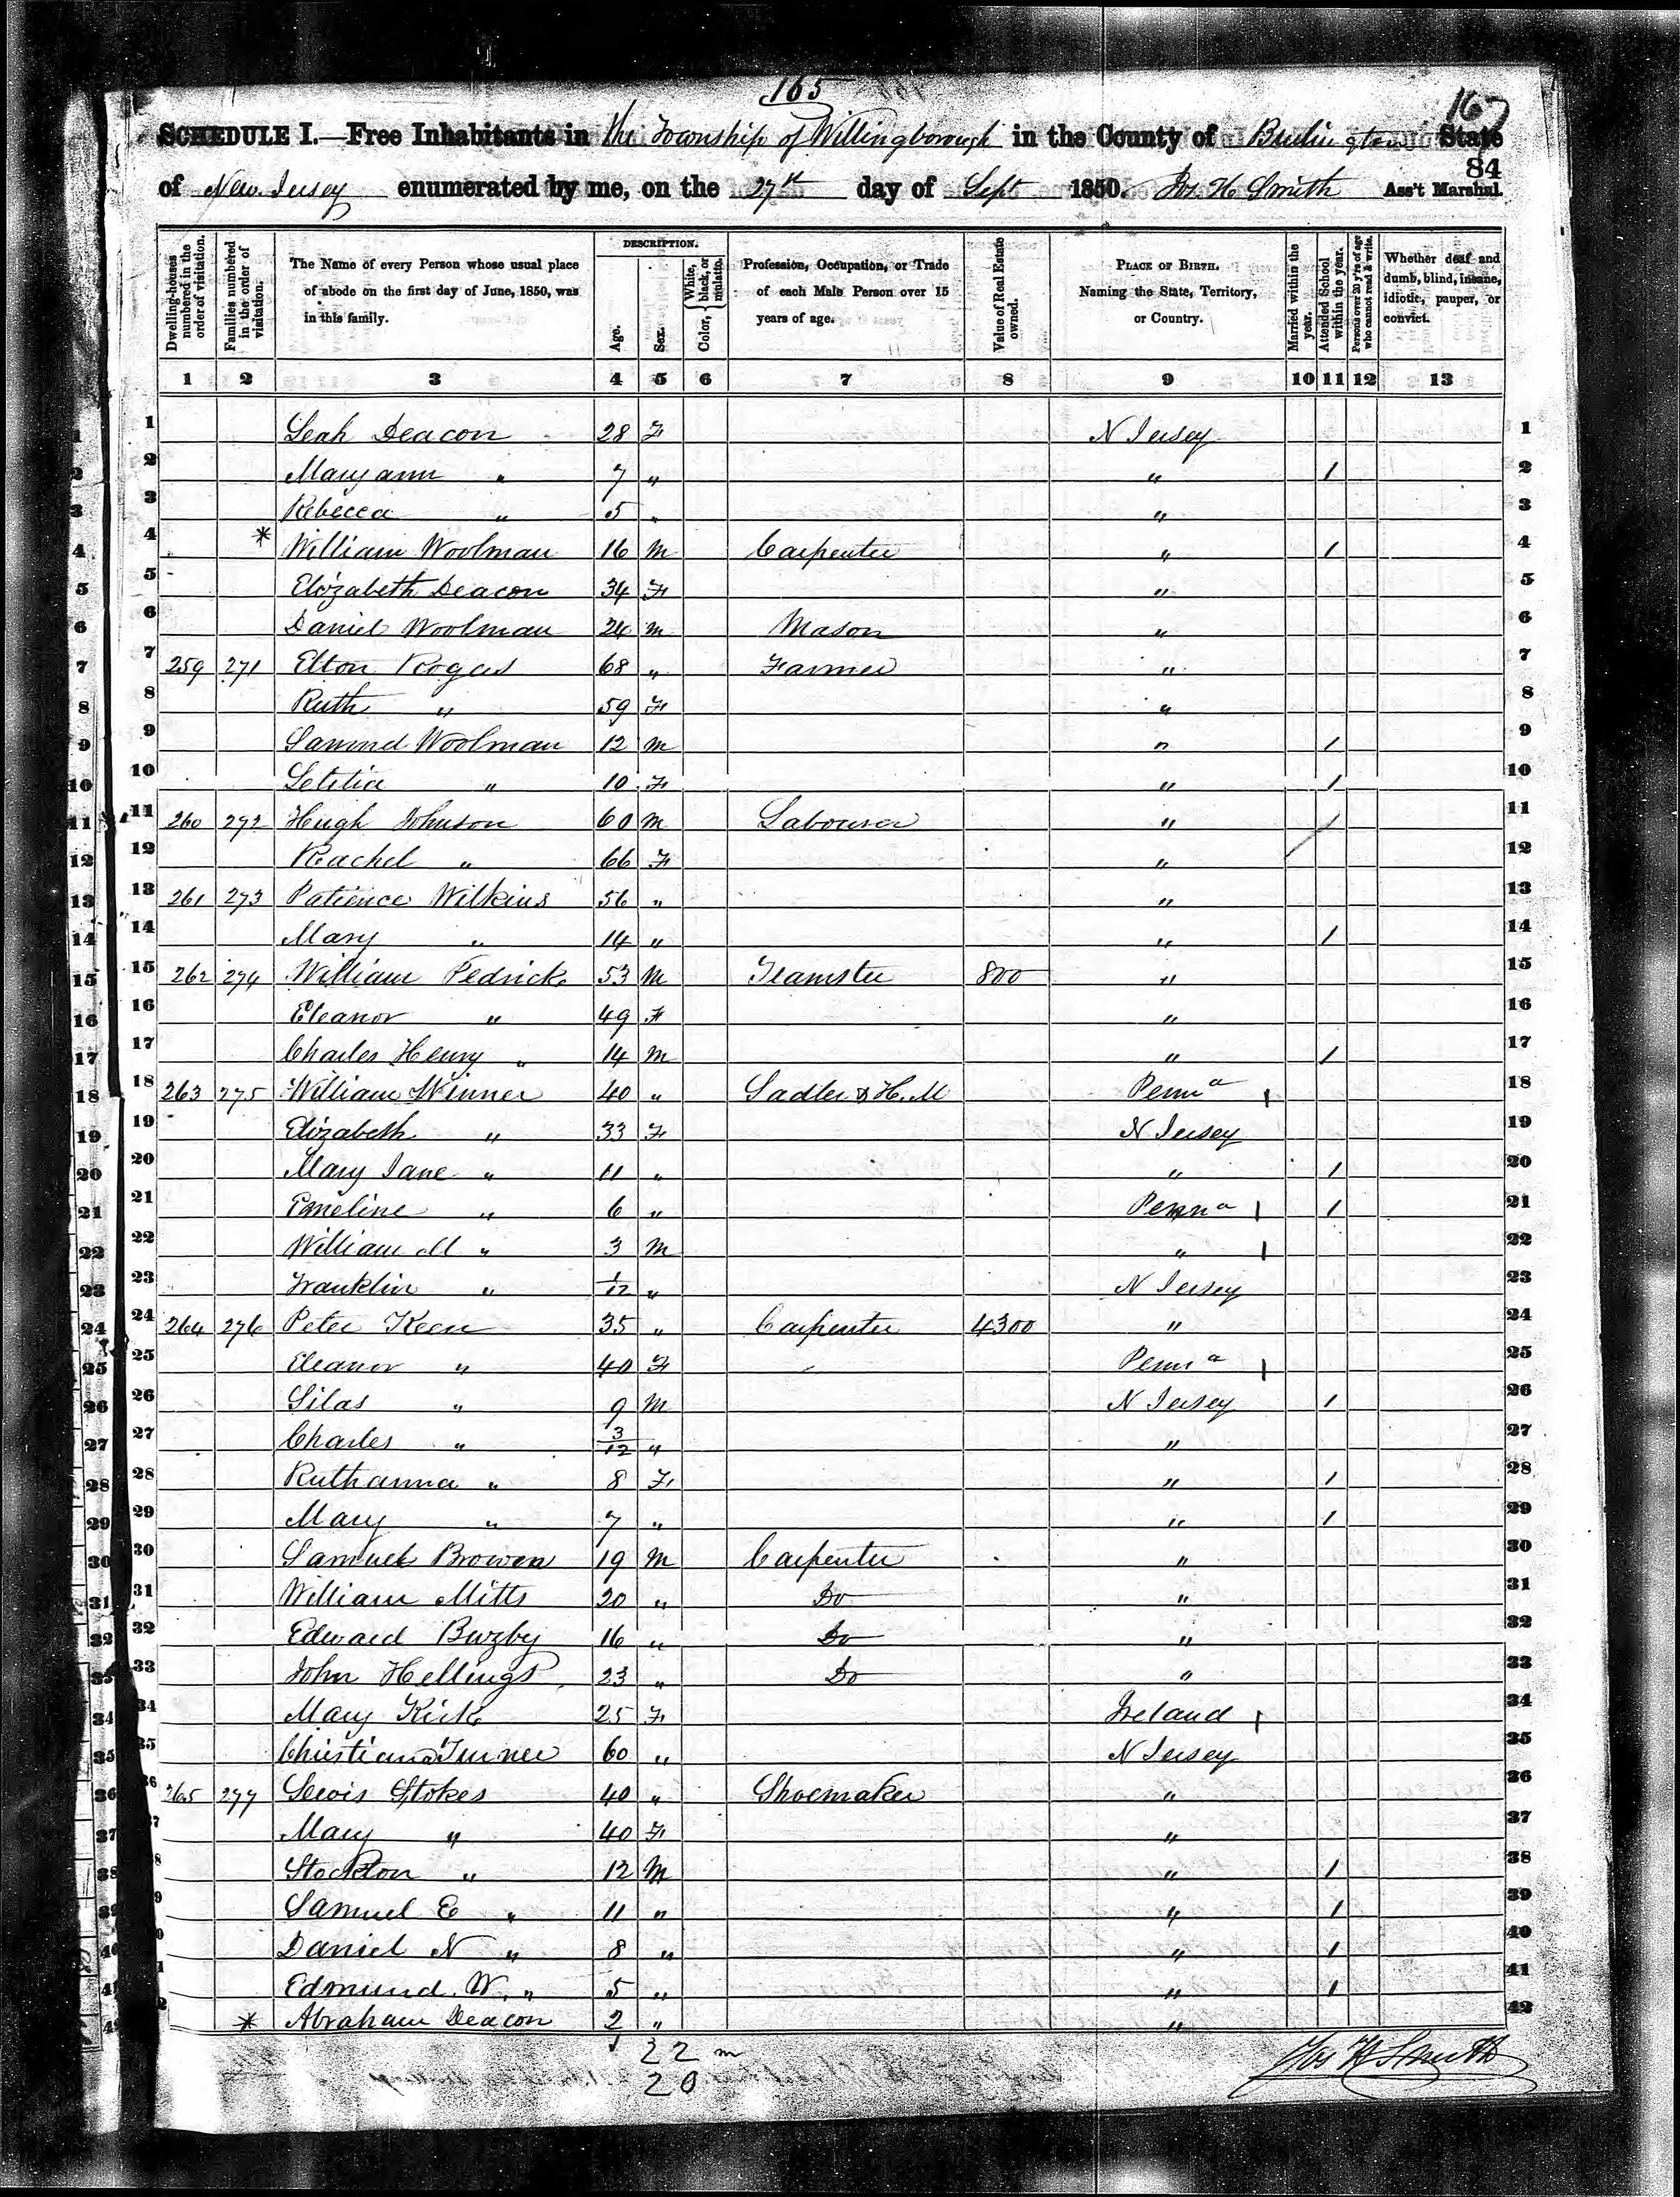 165
167
SCHEDULE I.—Free Inhabitants in the Township of Willingborough in the County of Burlington State
84
of New Jersey enumerated by me, on the 27th day of Sept 1850. Jos. H Smith Ass't Marshal.
Dwelling-houses numbered in the order of visitation. Families numbered in the order of visitation. The Name of every Person whose usual place of abode on the first day of June, 1850, was in this family. DESCRIPTION. Age. Sex. Color, White, black, or mulatto. Profession, Occupation, or Trade of each Male Person over 15 years of age. Value of Real Estate owned. PLACE OF BIRTH. Naming the State, Territory, or Country. Married within the year. Attended School within the year. Persons over 20 y'rs of age who cannot read & write. Whether deaf and dumb, blind, insane, idiotic, pauper, or convict.
1 2 3 4 5 6 7 8 9 10 11 12 13
1 Leah Deacon 28 F N Jersey 1
2 Mary ann " 7 " " 1 2
3 Rebecca " 5 " " 3
4 * William Woolman 16 M Carpenter " 1 4
5 Elizabeth Deacon 34 F " 5
6 Daniel Woolman 24 M Mason " 6
7 259 271 Elton Rogers 68 " Farmer " 7
8 Ruth " 59 F " 8
9 Samuel Woolman 12 M " 1 9
10 Letitia " 10 F " 1 10
11 260 272 Hugh Johnson 60 M Labourer " / 11
12 Rachel " 66 F " 12
13 261 273 Patience Wilkins 56 " " 13
14 Mary " 14 " " 1 14
15 262 274 William Pedrick 53 M Teamster 800 " 15
16 Eleanor " 49 F " 16
17 Charles Henry " 14 M " 1 17
18 263 275 William Winner 40 " Sadler & H. M Penna 1 18
19 Elizabeth " 33 F N Jersey 19
20 Mary Jane " 11 " " 1 20
21 Emeline " 6 " Penna 1 1 21
22 William M " 3 M " 1 22
23 Franklin " 1/12 " N Jersey 23
24 264 276 Peter Keen 35 " Carpenter 4300 " 24
25 Eleanor " 40 F Penna 1 25
26 Silas " 9 M N Jersey 1 26
27 Charles " 3/12 " " 27
28 Ruthanna " 8 F " 1 28
29 Mary " 7 " " 1 29
30 Samuel Browen 19 M Carpenter " 30
31 William Mitts 20 " Do " 31
32 Edward Buzby 16 " Do " 32
33 John Hellings 23 " Do " 33
34 Mary Kirk 25 F Ireland 1 34
35 Christiana Turner 60 " N Jersey 35
36 265 277 Lewis Stokes 40 " Shoemaker " 36
37 Mary " 40 F " 37
38 Stockton " 12 M " 1 38
39 Samuel E " 11 " " 1 39
40 Daniel N " 8 " " 1 40
41 Edmund W. " 5 " " 1 41
42 * Abraham Deacon 2 " " 42
22 m
20
Jos H Smith